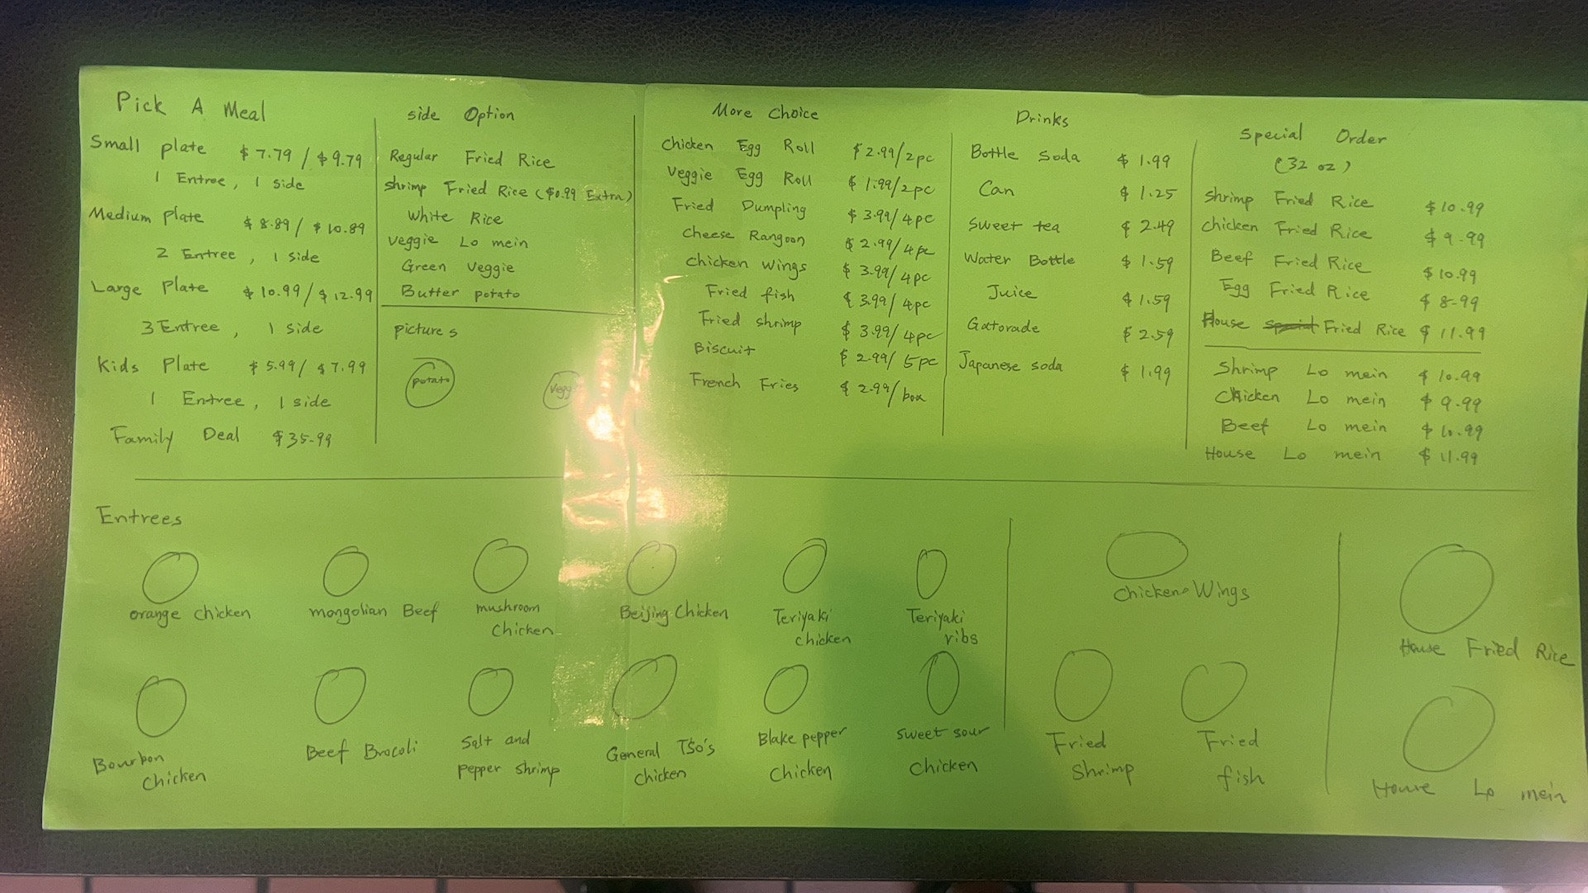 Pick A Meal
Small plate $7.79 / $9.79
1 Entree, 1 side
Medium plate $8.89 / $10.89
2 Entree, 1 side
Large Plate $10.99 / $12.99
3 Entree, 1 side
Kids Plate $5.99 / $7.99
1 Entree, 1 side
Family Deal $35.99
side Option
Regular Fried Rice
shrimp Fried Rice ($0.99 Extra)
White Rice
Veggie Lo mein
Green Veggie
Butter potato
pictures
potato
Vegg
More Choice
Chicken Egg Roll $2.99/2pc
Veggie Egg Roll $1.99/2pc
Fried Dumpling $3.99/4pc
Cheese Rangoon $2.99/4pc
Chicken Wings $3.99/4pc
Fried fish $3.99/4pc
Fried shrimp $3.99/4pc
Biscuit $2.99/5pc
French Fries $2.99/box
Drinks
Bottle Soda $1.99
Can $1.25
Sweet tea $2.49
Water Bottle $1.59
Juice $1.59
Gatorade $2.59
Japanese soda $1.99
Special Order
(32 oz)
Shrimp Fried Rice $10.99
Chicken Fried Rice $9.99
Beef Fried Rice $10.99
Egg Fried Rice $8.99
House Fried Rice $11.99
Shrimp Lo mein $10.99
Chicken Lo mein $9.99
Beef Lo mein $10.99
House Lo mein $11.99
Entrees
orange chicken
mongolian Beef
mushroom
Chicken
Beijing Chicken
Teriyaki
chicken
Teriyaki
ribs
Chicken Wings
House Fried Rice
Bourbon
Chicken
Beef Brocoli
Salt and
pepper shrimp
General TSo's
Chicken
Blake pepper
Chicken
sweet sour
Chicken
Fried
Shrimp
Fried
fish
House Lo mein